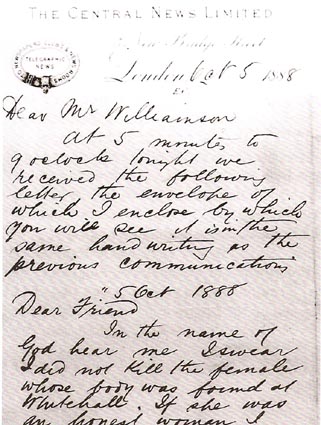 THE CENTRAL NEWS LIMITED
TELEGRAPHIC
NEWS
New Bridge Street
London Oct 5 1888
Dear Mr Williamson
At 5 minutes to
9 oclock tonight we
received the following
letter the envelope of
which I enclose by which
you will see it is in the
same handwriting as the
previous communications
"5 Oct 1888
Dear Friend
In the name of
God hear me I swear
I did not kill the female
whose body was found at
Whitehall. If she was
an honest woman I